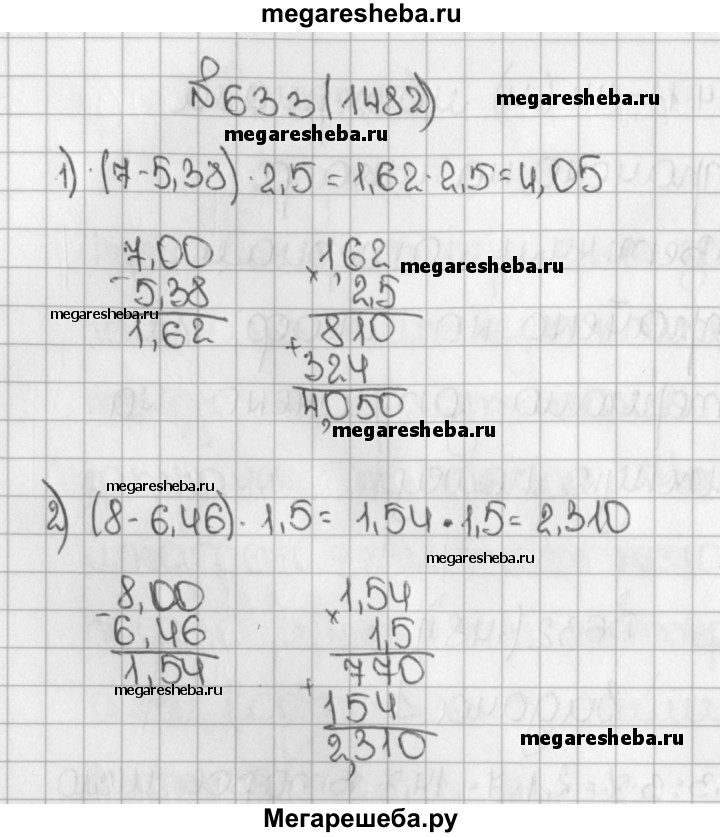 megaresheba.ru
№633(1482)
megaresheba.ru
megaresheba.ru
1) (7-5,38)·2,5=1,62·2,5=4,05
7,00
- 5,38
1,62
megaresheba.ru
1,62
× 2,5
810
+ 324
4,050
megaresheba.ru
megaresheba.ru
megaresheba.ru
2) (8-6,46)·1,5=1,54·1,5=2,310
megaresheba.ru
8,00
- 6,46
1,54
megaresheba.ru
1,54
× 1,5
770
+ 154
2,310
megaresheba.ru
Мегарешеба.ру